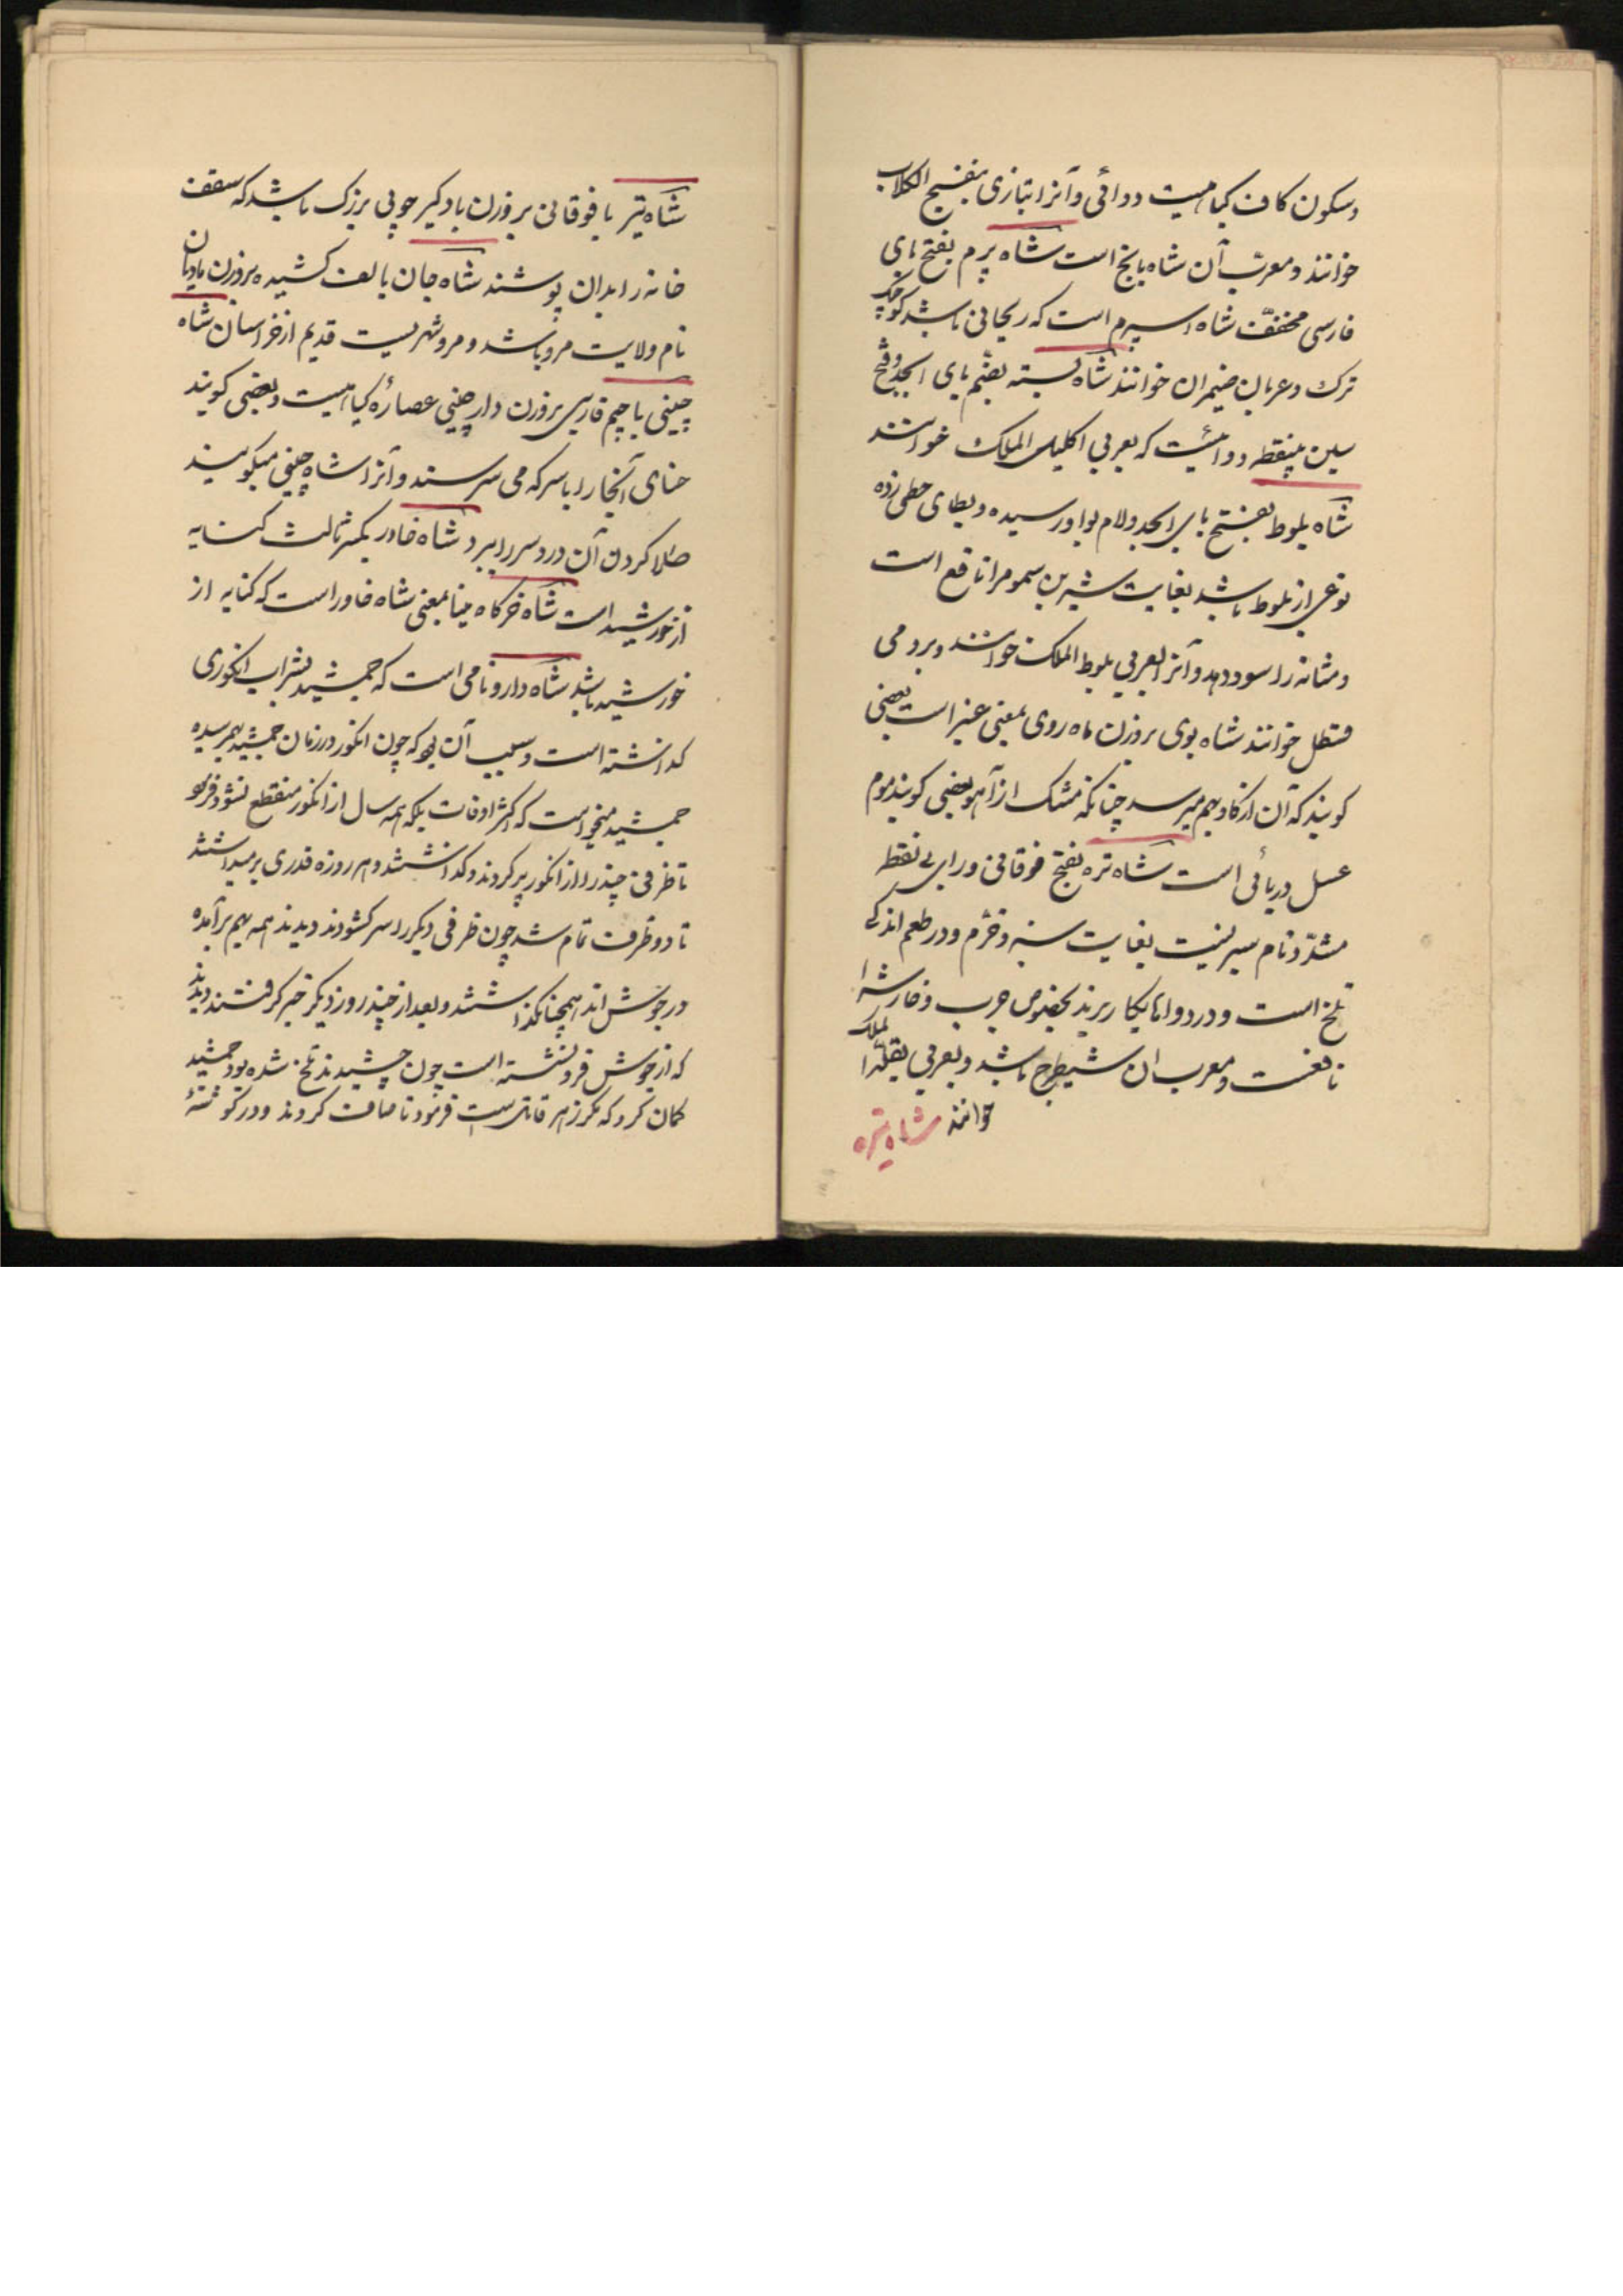 وسکون کاف کیاهیست دوائی وآنرا بتازی بنفسج الکلاب
خوانند ومعرّب آن شاه بابج است شاه پرم بفتح بای
فارسی مخفّف شاه اسپرم است که ریحانی باشد کوچک
ترک وعربان ضیمران خوانند شاه بسته بضّم بای ابجد وفتح
سین بینقطه دوائیست که بعربی اکلیل الملک خوانند
شاه بلوط بفتح بای ابجد ولام بواو رسیده وبطای حطی زده
نوعی از بلوط باشد بغایت شیرین سموم را نافع است
ومثانه را سود دهد وآنرا بعربی بلوط الملک خوانند وبرومی
قسطل خوانند شاه بوی بروزن ماه روی بمعنی عنبر است بعضی
کویند که آن از کاو بهم میرسد چنانکه مشک از آهو بعضی کویند موم
عسل دریائی است شاه تره بفتح فوقانی ورای بی نقطه
مشدّد نام سبزیست بغایت سبز وخرّم ودر طعم اندکی
تلخ است ودر دواها بکار برند بخصوص جرب وخارش را
نافعست ومعرب ان شیطرج باشد وبعربی بقلة الملک
خوانند شاه تره
شاه تیر با فوقانی بروزن بادکیر چوبی بزرک باشد که سقف
خانه را بدان پوشند شاه جان بالف کشیده بروزن بادبان
نام ولایت مرو باشد ومرو شهریست قدیم از خراسان شاه
چینی با چیم فارسی بروزن دارچینی عصارهٔ کیاهیست وبعضی کویند
حنای آنجا را با سرکه می سرسند وآنرا شاه چینی میکویند
طلا کردن آن درد سر را ببرد شاه خاور بکسر ثالث کنایه
از خورشید است شاه خرکاه مینا بمعنی شاه خاور است که کنایه از
خورشید باشد شاه دارو نامی است که جمشید بشراب انکوری
کداشته است وسبب آن بود که چون انکور در زمان جمشید بهم رسیده
جمشید میخواست که اکثر اوقات بلکه همه سال از انکور منقطع نشود فرمود
تا ظرفی چند را از انکور پر کردند وکداشتند وهر روزه قدری برمیداشتند
تا دو ظرف تمام شد چون ظرفی دیکر را سر کشودند دیدند همه بهم برآمده
در جوش اند همچنان بکذاشتند وبعد از چند روز دیکر خبر کرفتند دیدند
که از جوش فرو نشسته است چون چشیدند تلخ شده بود جمشید
کمان کرد که مکر زهر قاتل است فرمود تا صاف کردند ودر کوشهٔ